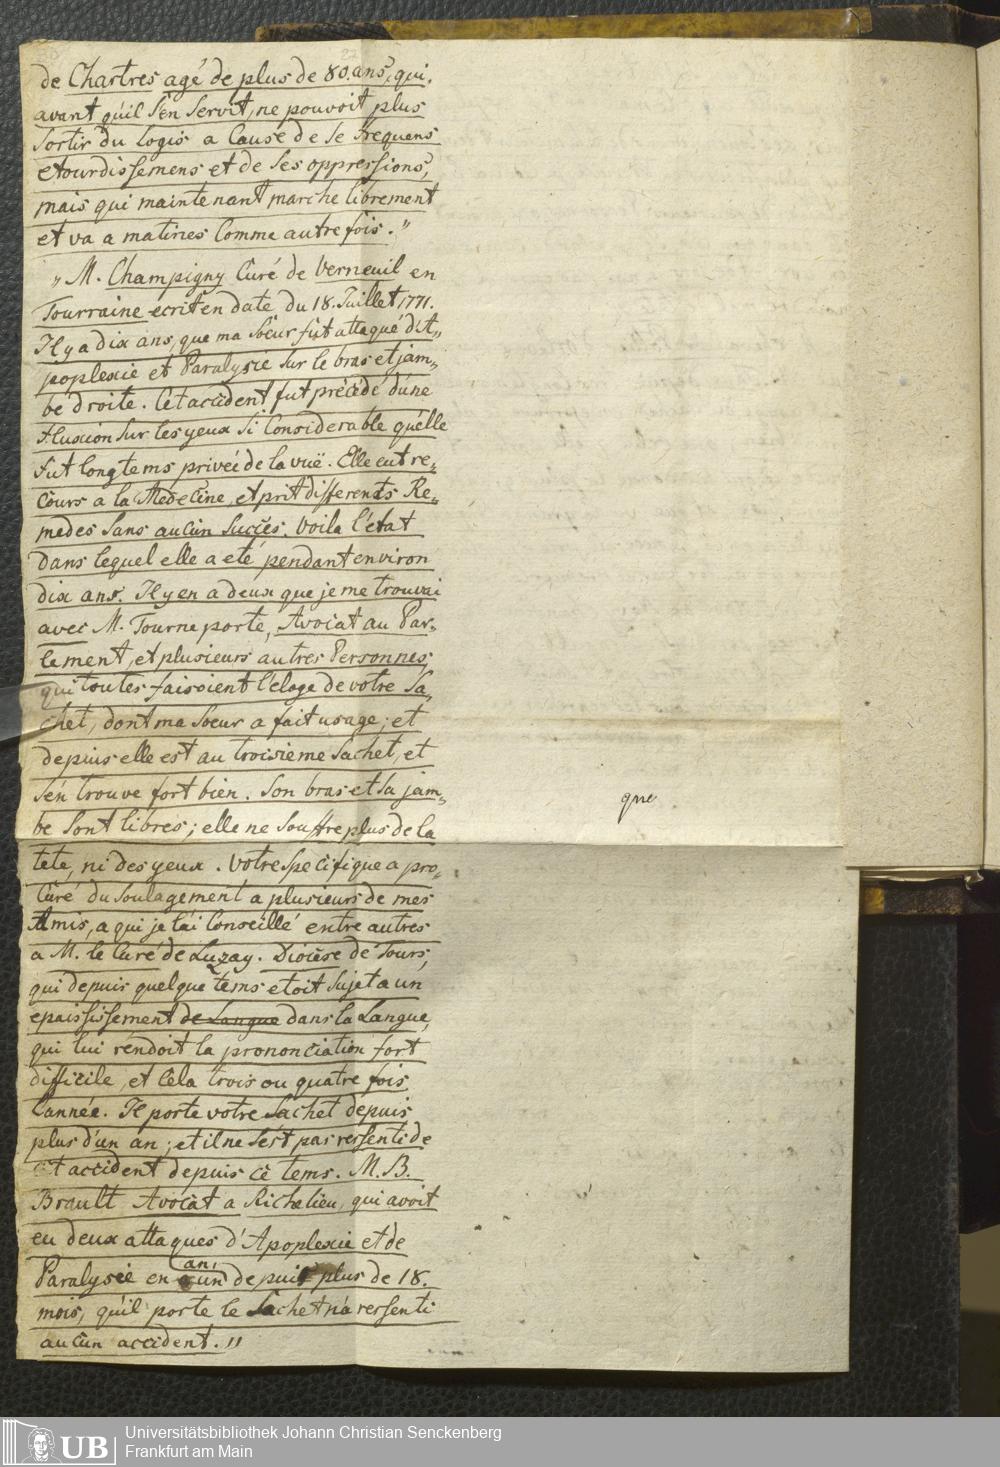 de Chartres agé de plus de 80. ans, qui,
avant qu'il s'en servit, ne pouvoit plus
sortir du logis a Cause de se frequens
etourdissemens et de ses oppressions,
mais qui maintenant marche librement
et va a matines Comme autre fois."
„ M. Champigny Curé de Verneuil en
Tourraine ecrit en date du 18. Juillet 1771.
Il y a dix ans, que ma Soeur fut attaqué d'it„
poplexie et Paralysie sur le bras et jam„
be droite. Cet accident fut précédé d'une
fluxion sur les yeux si Considerable qu'elle
fut longtems privée de la vuë. Elle eut re„
Cours a la Medecine, et prit differents Re„
medes sans aucun succès. Voila l'état
dans lequel elle a eté pendant environ
dix ans. Il y en a deux que je me trouvai
avec M. Tourneporte, Avocat au Par„
lement, et plusieurs autres Personnes,
qui toutes faisoient l'éloge de votre Sa„
chet, dont ma Soeur a fait usage; et
depuis elle est au troisieme Sachet, et
s'en trouve fort bien. Son bras et sa jam„
be sont libres; elle ne souffre plus de la
tete, ni des yeux. Votre specifique a pro„
curé du soulagement a plusieurs de mes
Amis, a qui je l'ai Conseillé entre autres
a M. le Curé de Luzay. Diocèse de Tours,
qui depuis quelque tems etoit sujet a un
epaississement de Langue dans la Langue,
qui lui rendoit la prononciation fort
difficile, et Cela trois ou quatre fois
l'année. Il porte votre Sachet depuis
plus d'un an; et il ne s'est pas ressenti de
cet accident depuis ce tems. M. B.
Brault Avocat a Richelieu, qui avoit
eu deux attaques d'Apoplexie et de
Paralysie en un an, depuis plus de 18.
mois, qu'il porte le Sachet n'a ressenti
aucun accident."
que
Universitätsbibliothek Johann Christian Senckenberg
Frankfurt am Main
UB